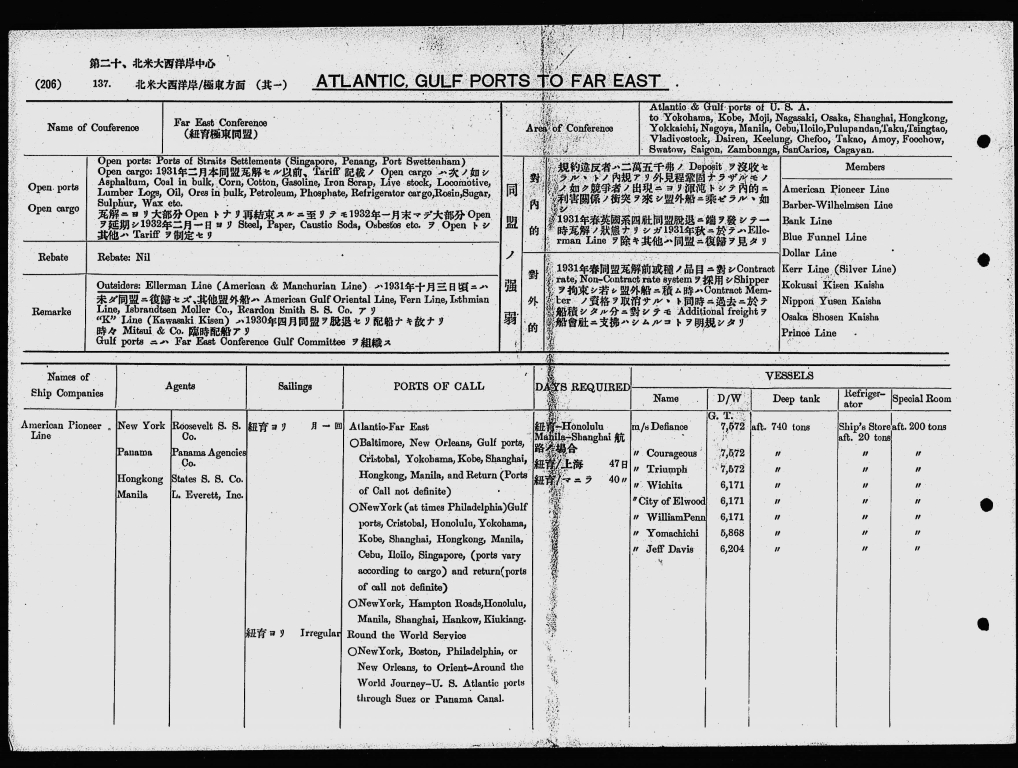 第二十、北米大西洋岸中心
(206) 137. 北米大西洋岸/極東方面 (其一) ATLANTIC, GULF PORTS TO FAR EAST
Name of Couference
Far East Conference
(紐育極東同盟)
Area of Conference
Atlantic & Gulf ports of U. S. A.
to Yokohama, Kobe, Moji, Nagasaki, Osaka, Shanghai, Hongkong,
Yokkaichi, Nagoya, Manila, Cebu, Iloilo, Pulupandau, Taku, Tsingtao,
Vladivostock, Dairen, Keelung, Chefoo, Takao, Amoy, Foochow,
Swatow, Saigon, Zamboanga, SanCarlos, Cagayan.
Open ports
Open cargo
Open ports: Ports of Straits Settlements (Singapore, Penang, Port Swettenham)
Open cargo: 1931年二月本同盟瓦解セル以前、Tariff 記載ノ Open cargo ハ次ノ如シ
Asphaltum, Coal in bulk, Corn, Cotton, Gasoline, Iron Scrap, Live stock, Locomotive,
Lumber Logs, Oil, Ores in bulk, Petroleum, Phosphate, Refrigerator cargo, Rosin, Sugar,
Sulphur, Wax etc.
瓦解ニヨリ大部分 Open トナリ再結束スルニ至リテモ1932年一月末マデ大部分 Open
ヲ延期シ1932年二月一日ヨリ Steel, Paper, Caustic Soda, Osbestos etc. ヲ Open トシ
其他ハ Tariff ヲ制定セリ
Rebate
Rebate: Nil
Remarke
Outsiders: Ellerman Line (American & Manchurian Line) ハ1931年十月三日頃ニハ
未ダ同盟ニ復歸セズ、其他盟外船ハ American Gulf Oriental Line, Fern Line, Isthmian
Line, Isbrandtsen Moller Co., Reardon Smith S. S. Co. アリ
"K" Line (Kawasaki Kisen) ハ1930年四月同盟ヲ脱退セリ配船ナキ故ナリ
時々 Mitsui & Co. 臨時配船アリ
Gulf ports ニハ Far East Conference Gulf Committee ヲ組織ス
同盟ノ强弱
對內的
規約違反者ハ二萬五千弗ノ Deposit ヲ沒收セ
ラル、トノ內規アリ外見程鞏固ナラザルモノ
ノ如ク競爭者ノ出現ニヨリ渾沌トシテ內的ニ
利害關係ノ衝突ヲ來シ盟外船ニ乘ゼラル、如
シ
1931年春英國系四社同盟脱退ニ端ヲ發シテ一
時瓦解ノ狀態ナリシガ1931年秋ニ於テハElle-
rman Line ヲ除キ其他ハ同盟ニ復歸ヲ見タリ
對外的
1931年春同盟瓦解前或種ノ品目ニ對シContract
rate, Non-Contract rate systemヲ採用シShipper
ヲ拘束シ若シ盟外船ニ積ミ時ハContract Mem-
ber ノ資格ヲ取消サル、ト同時ニ過去ニ於テ
船積シタル分ニ對シテモ Additional freightヲ
船會社ニ支拂ハシムルコトヲ明規シタリ
Members
American Pioneer Line
Barber-Wilhelmsen Line
Bank Line
Blue Funnel Line
Dollar Line
Kerr Line (Silver Line)
Kokusai Kisen Kaisha
Nippon Yusen Kaisha
Osaka Shosen Kaisha
Prince Line
Names of
Ship Companies
Agents
Sailings
PORTS OF CALL
DAYS REQUIRED
VESSELS
Name
D/W
Deep tank
Refriger-
ator
Special Room
American Pioneer
Line
New York Roosevelt S. S.
Co.
Panama Panama Agencies
Co.
Hongkong States S. S. Co.
Manila L. Everett, Inc.
紐育ヨリ 月一回
紐育ヨリ Irregular
Atlantic-Far East
○Baltimore, New Orleans, Gulf ports,
Cristobal, Yokohama, Kobe, Shanghai,
Hongkong, Manila, and Return (Ports
of Call not definite)
○NewYork (at times Philadelphia) Gulf
ports, Cristobal, Honolulu, Yokohama,
Kobe, Shanghai, Hongkong, Manila,
Cebu, Iloilo, Singapore, (ports vary
according to cargo) and return (ports
of call not definite)
○NewYork, Hampton Roads, Honolulu,
Manila, Shanghai, Hankow, Kiukiang.
Round the World Service
○NewYork, Boston, Philadelphia, or
New Orleans, to Orient-Around the
World Journey-U. S. Atlantic ports
through Suez or Panama Canal.
紐育-Honolulu
Manila-Shanghai 航
路ノ場合
紐育/上海 47日
紐育/マニラ 40〃
G. T.
m/s Defiance 7,572 aft. 740 tons Ship's Store aft. 200 tons
aft. 20 tons
〃 Courageous 7,572 〃 〃 〃
〃 Triumph 7,572 〃 〃 〃
〃 Wichita 6,171 〃 〃 〃
〃 City of Elwood 6,171 〃 〃 〃
〃 WilliamPenn 6,171 〃 〃 〃
〃 Yomachichi 5,868 〃 〃 〃
〃 Jeff Davis 6,204 〃 〃 〃